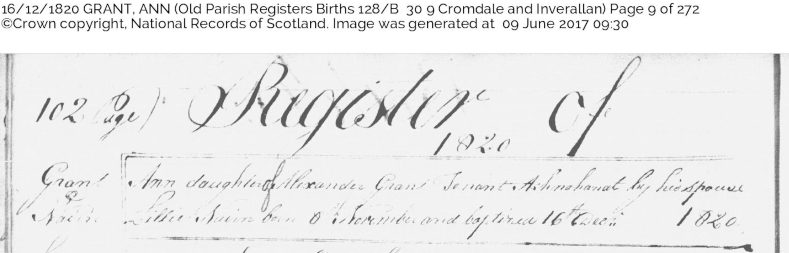 16/12/1820 GRANT, ANN (Old Parish Registers Births 128/B 30 9 Cromdale and Inverallan) Page 9 of 272
©Crown copyright, National Records of Scotland. Image was generated at 09 June 2017 09:30
102 Page) Register of
1820
Grant Ann daughter of Alexander Grant Tenant by his spouse
& Nairn born 8th November and baptized 16th Decr 1820
Nairn